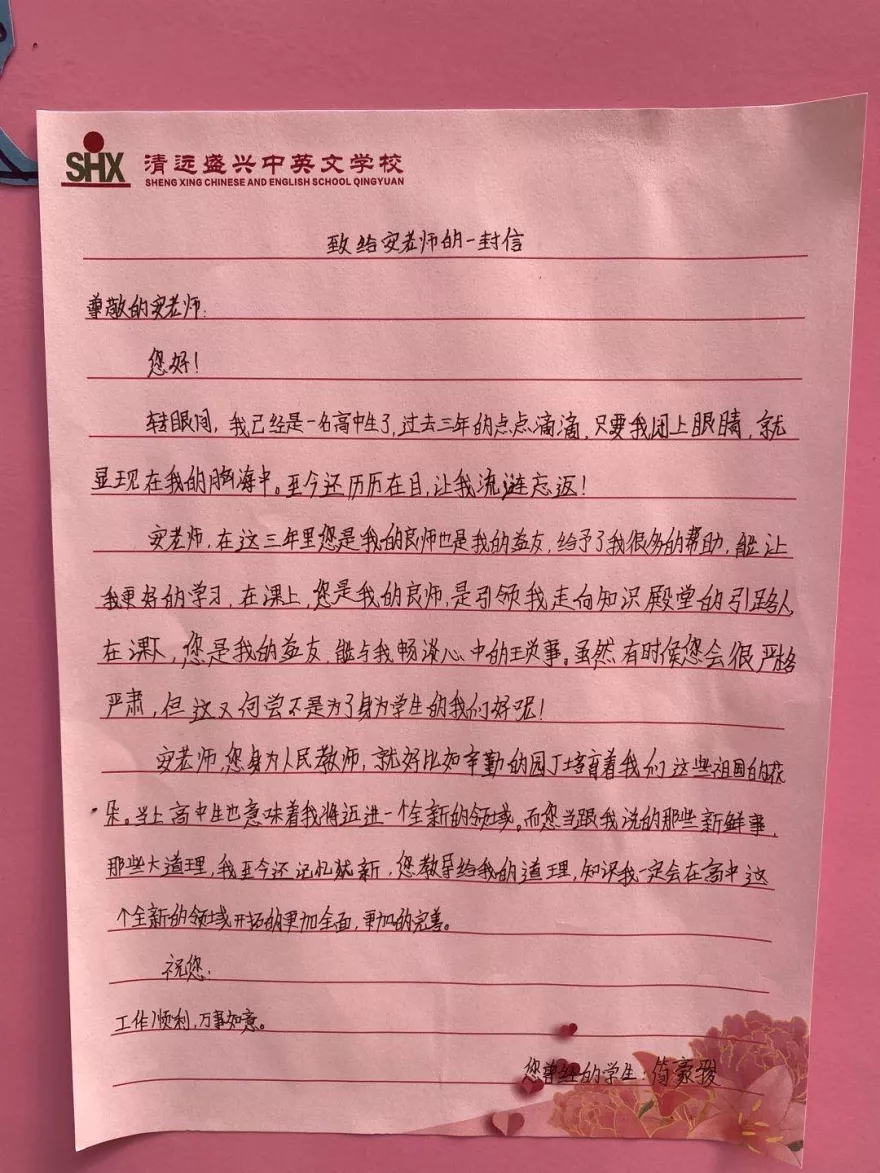 SHX 清远盛兴中英文学校
SHENG XING CHINESE AND ENGLISH SCHOOL QINGYUAN
致给安老师的一封信
尊敬的安老师:
您好!
转眼间,我已经是一名高中生了,过去三年的点点滴滴,只要我闭上眼睛,就
显现在我的脑海中。至今还历历在目,让我流涟忘返!
安老师,在这三年里您是我的良师也是我的益友,给予了我很多的帮助,能让
我更好的学习,在课上,您是我的良师,是引领我走向知识殿堂的引路人
在课下,您是我的益友,能与我畅谈心中的琐事。虽然有时候您会很严格
严肃,但这又何尝不是为了身为学生的我们好呢!
安老师,您身为人民教师,就好比如辛勤的园丁培育着我们这些祖国的花
朵。当上高中生也意味着我将迈进一个全新的领域。而您当跟我说的那些新鲜事,
那些大道理,我至今还记忆犹新,您教导给我的道理,知识我一定会在高中这
个全新的领域开拓的更加全面,更加的完善。
祝您:
工作顺利,万事如意。
您曾经的学生:豪骏